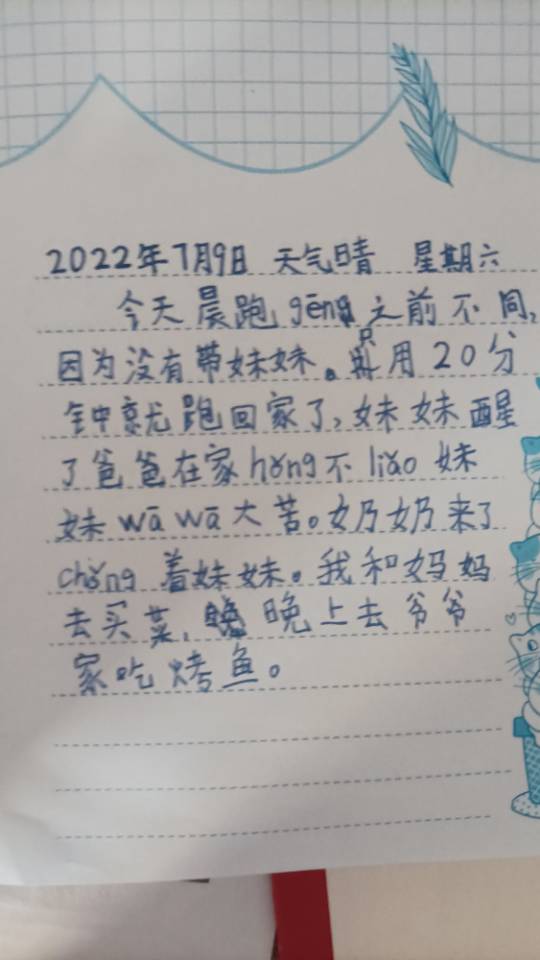 2022年7月9日 天气晴 星期六
今天晨跑gēng之前不同,
因为没有带妹妹。只用20分
钟就跑回家了,妹妹醒
了爸爸在家hǒng不liǎo妹
妹wāwā大苦。奶奶来了
chǒng着妹妹。我和妈妈
去买菜,晚上去爷爷
家吃烤鱼。